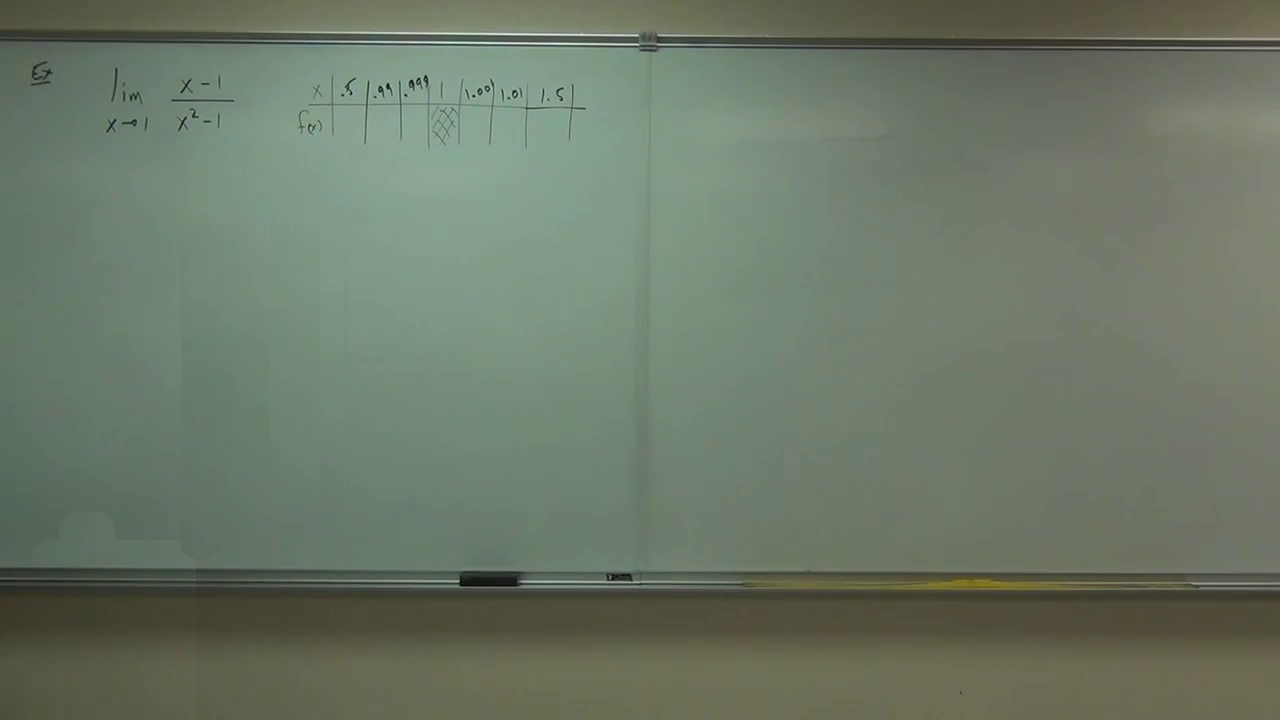 Ex lim x→1 x-1 / x²-1
x .5 .99 .999 1 1.001 1.01 1.5
f(x)